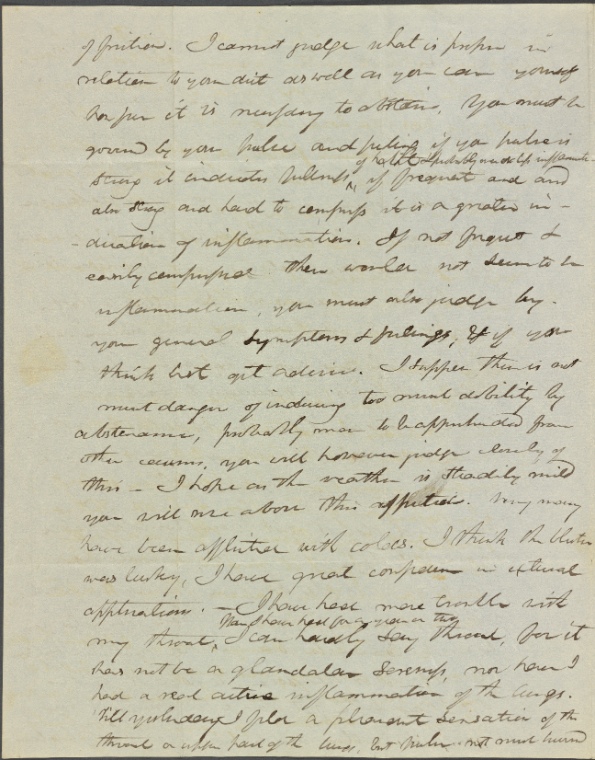 I cannot judge what is proper in
relation to your diet as well as you can yourself
how far it is necessary to abstain. You must be
governd by your pulse and feelings if your pulse is
strong it indicates fullness of habit & probably more or less inflammation if frequent and and
also strong and hard to compress it is a greater in-
-dication of inflammation. If not frequent &
easily compressed there would not seem to be
inflammation, you must also judge by
your general symptoms & feelings, & if you
think best get advice. I suppose there is not
much danger of inducing too much debility by
abstenance, probably more to be apprehended from
other causes, you will however judge closely of
this - I hope as the weather is steadily mild
you will rise above this affection. Very many
have been afflicted with colds. I think the blister
was lucky, I have great confidence in external
applications. - I have had more trouble with
my throat, than I have had for a year or two I can hardly say throat, for it
has not be a glandular soreness, nor have I
had a real active inflammation of the lungs.
Till yesterday I felt a pleasant sensation of the
throat or upper part of the lungs, but not much